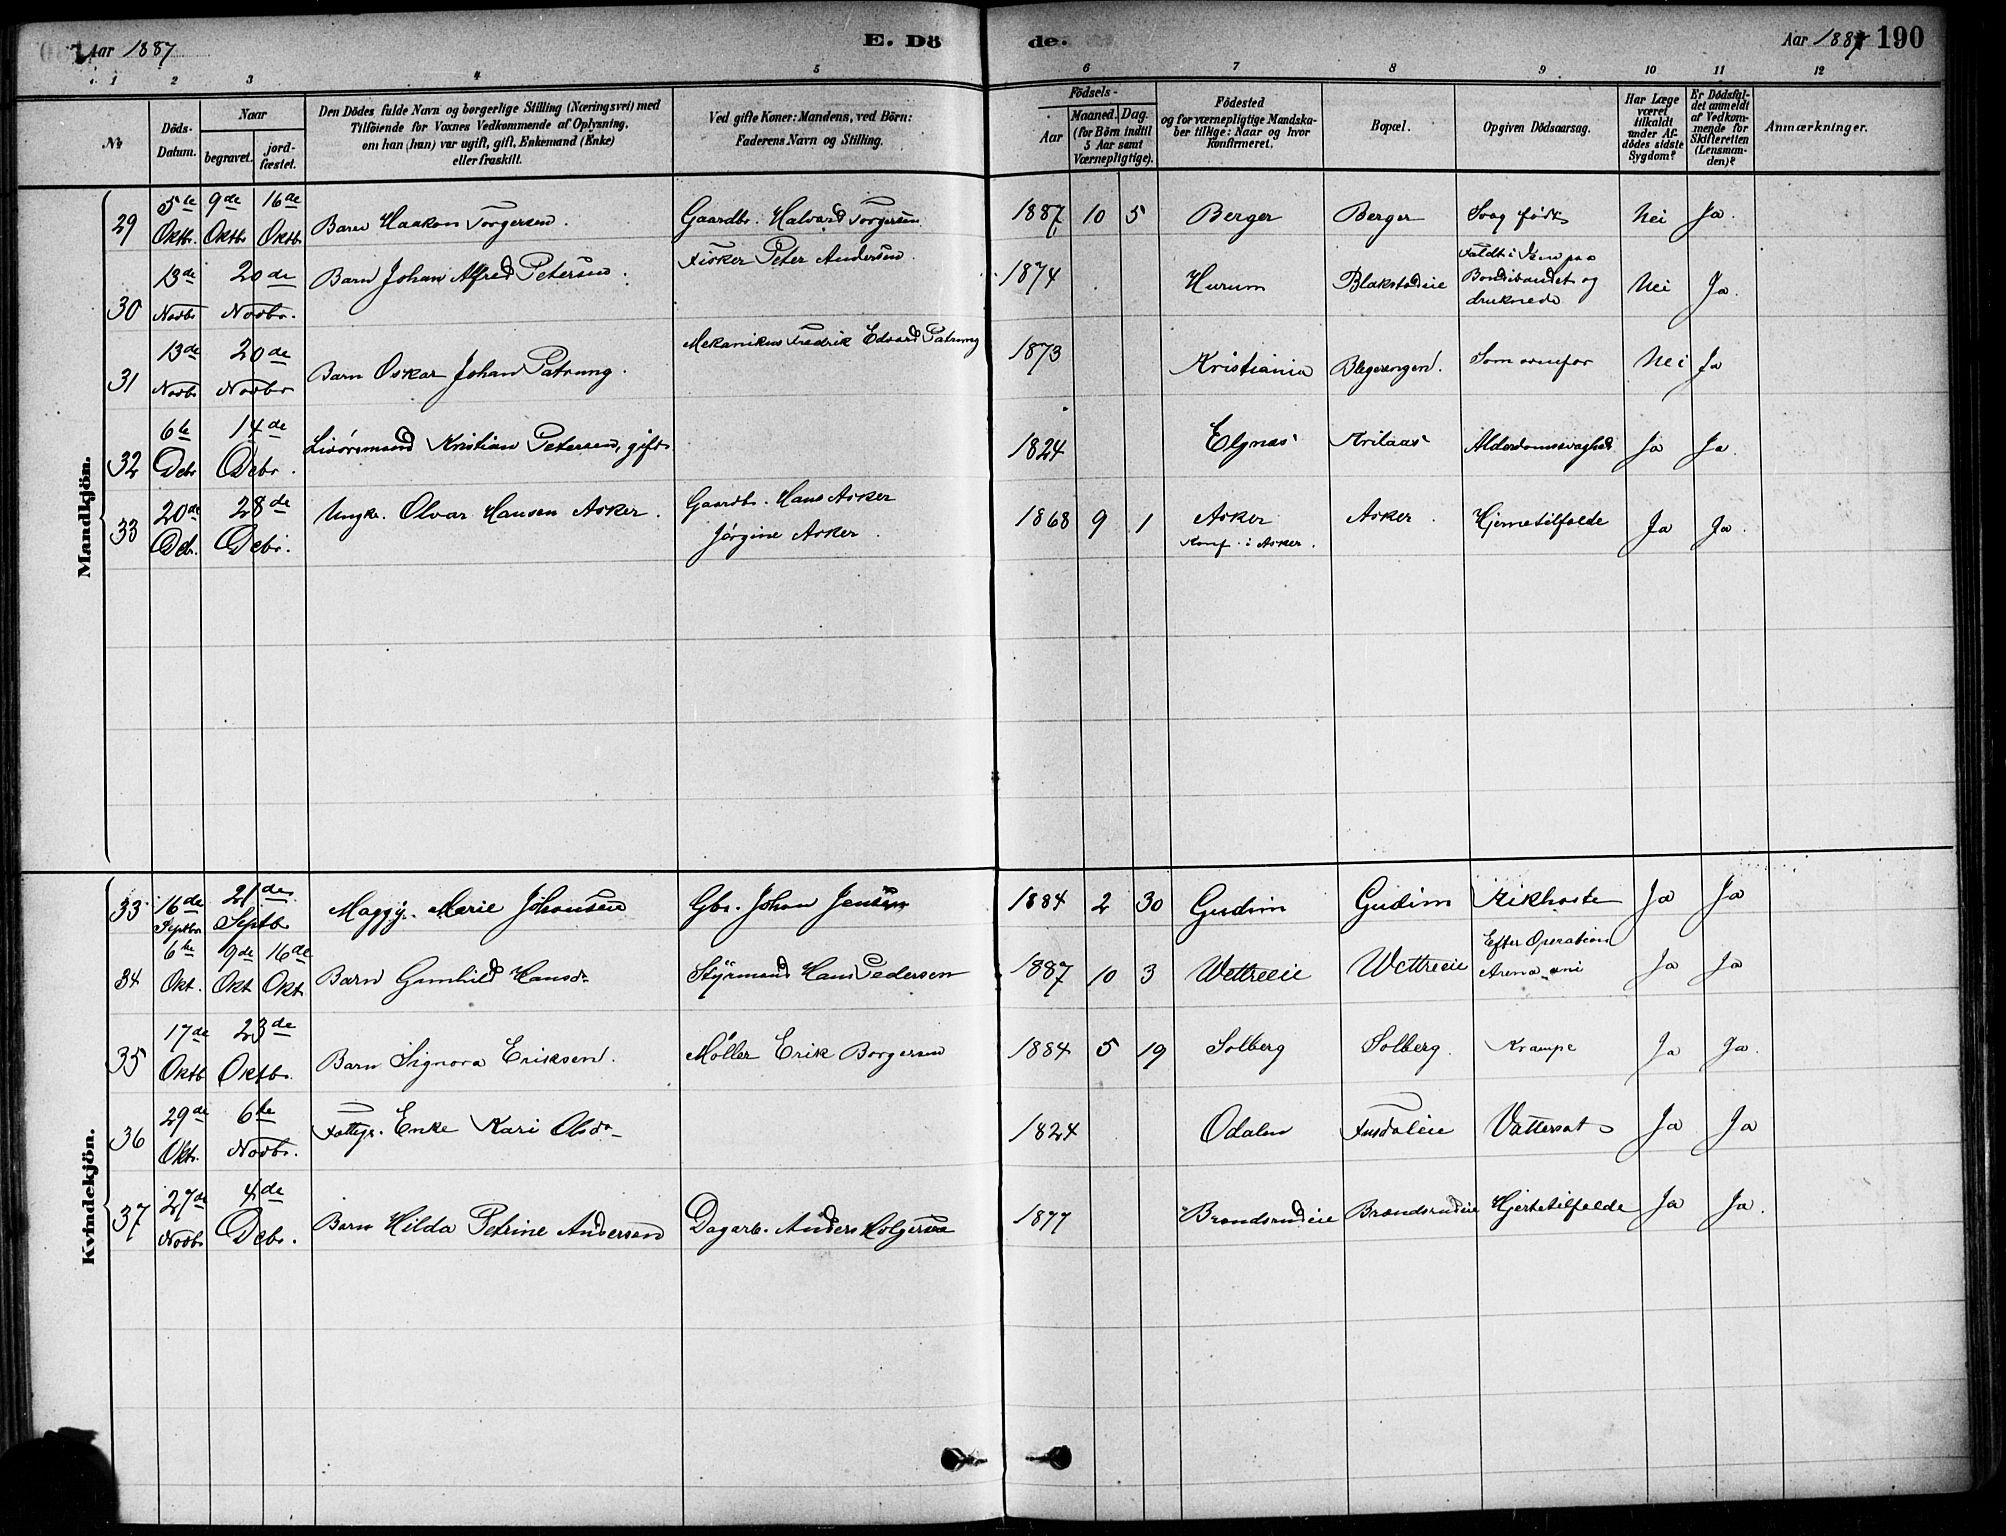 Aar 1887
E. Dö
de.
Aar 1887 190
1 2 3 4 5 6 7 8 9 10 11 12
No
Döds-Datum.
Naar
begravet.
jord-fæstet.
Den Dödes fulde Navn og borgerlige Stilling (Næringsvei) med
Tilföiende for Voxnes Vedkommende af Oplysning,
om han (hun) var ugift, gift, Enkemand (Enke)
eller fraskilt.
Ved gifte Koner: Mandens, ved Börn:
Faderens Navn og Stilling.
Födsels-
Aar
Maaned. Dag.
(for Börn indtil
5 Aar samt
Værnepligtige).
Födested
og for værnepligtige Mandska-
ber tillige: Naar og hvor
konfirmeret.
Bopæl.
Opgiven Dödsaarsag.
Har Læge
været
tilkaldt
under Af-
dödes sidste
Sygdom?
Er Dödsfal-
det anmeldt
af Vedkom-
mende for
Skifteretten
(Lensman-
den)?
Anmærkninger.
Mandkjön.
29 5te Oktb. 9de Oktb. 16de Oktb. Barn Haakon Torgersen. Gaardbr. Halvard Torgersen 1887 10 5 Berger Berger Svag født Nei Ja.
30 13de Novbr 20de Novbr. Barn Johan Alfred Petersen. Fisker Peter Andersen 1874 Hurum Blakstadeie Faldt i Isen paa Bondivandet og druknede Nei Ja.
31 13de Novbr 20de Novbr Barn Oskar Johan Patrung. Mekanikus Fredrik Edvard Patrung 1873 Kristiania Blegerengen. Som ovenfor Nei Ja
32 6te Debr 14de Debr. Livøremand Kristian Petersen, gift 1824 Elgnæs Arilaas Alderdomssvaghed Ja Ja.
33 20de Debr. 28de Debr. Ungk. Olvar Hansen Asker. Gaardbr. Hans Asker Jørgine Asker. 1868 9 1 Asker Konf. i Asker. Asker. Hjernetilfælde Ja Ja.
Kvindekjön.
33 16de Septbr 21de Septbr Maggy. Marie Johansen Gbr. Johan Jensen 1884 2 30 Gudim Gudim Kikhoste Ja Ja
34 6te Okt. 9de Okt 16de Okt Barn Gunhild Hansdr. Styrmand Hans Pedersen 1887 10 3 Wettreeie Wettreeie Efter Operation Ja Ja
35 17de Oktb 23de Oktb. Barn Signora Eriksen. Møller Erik Borgersen 1884 5 19 Solberg Solberg. Krampe Ja Ja.
36 29de Oktb. 6te Novbr. Fattigl. Enke Kari Olsdr. 1824 Odalen Fusdaleie Vattersot Ja Ja
37 27de Novbr 4de Debr. Barn Hilda Petrine Andersen Dagarb. Anders Holgersen 1877 Brændsrudeie Brændsrudeie Hjertetilfælde Ja Ja.